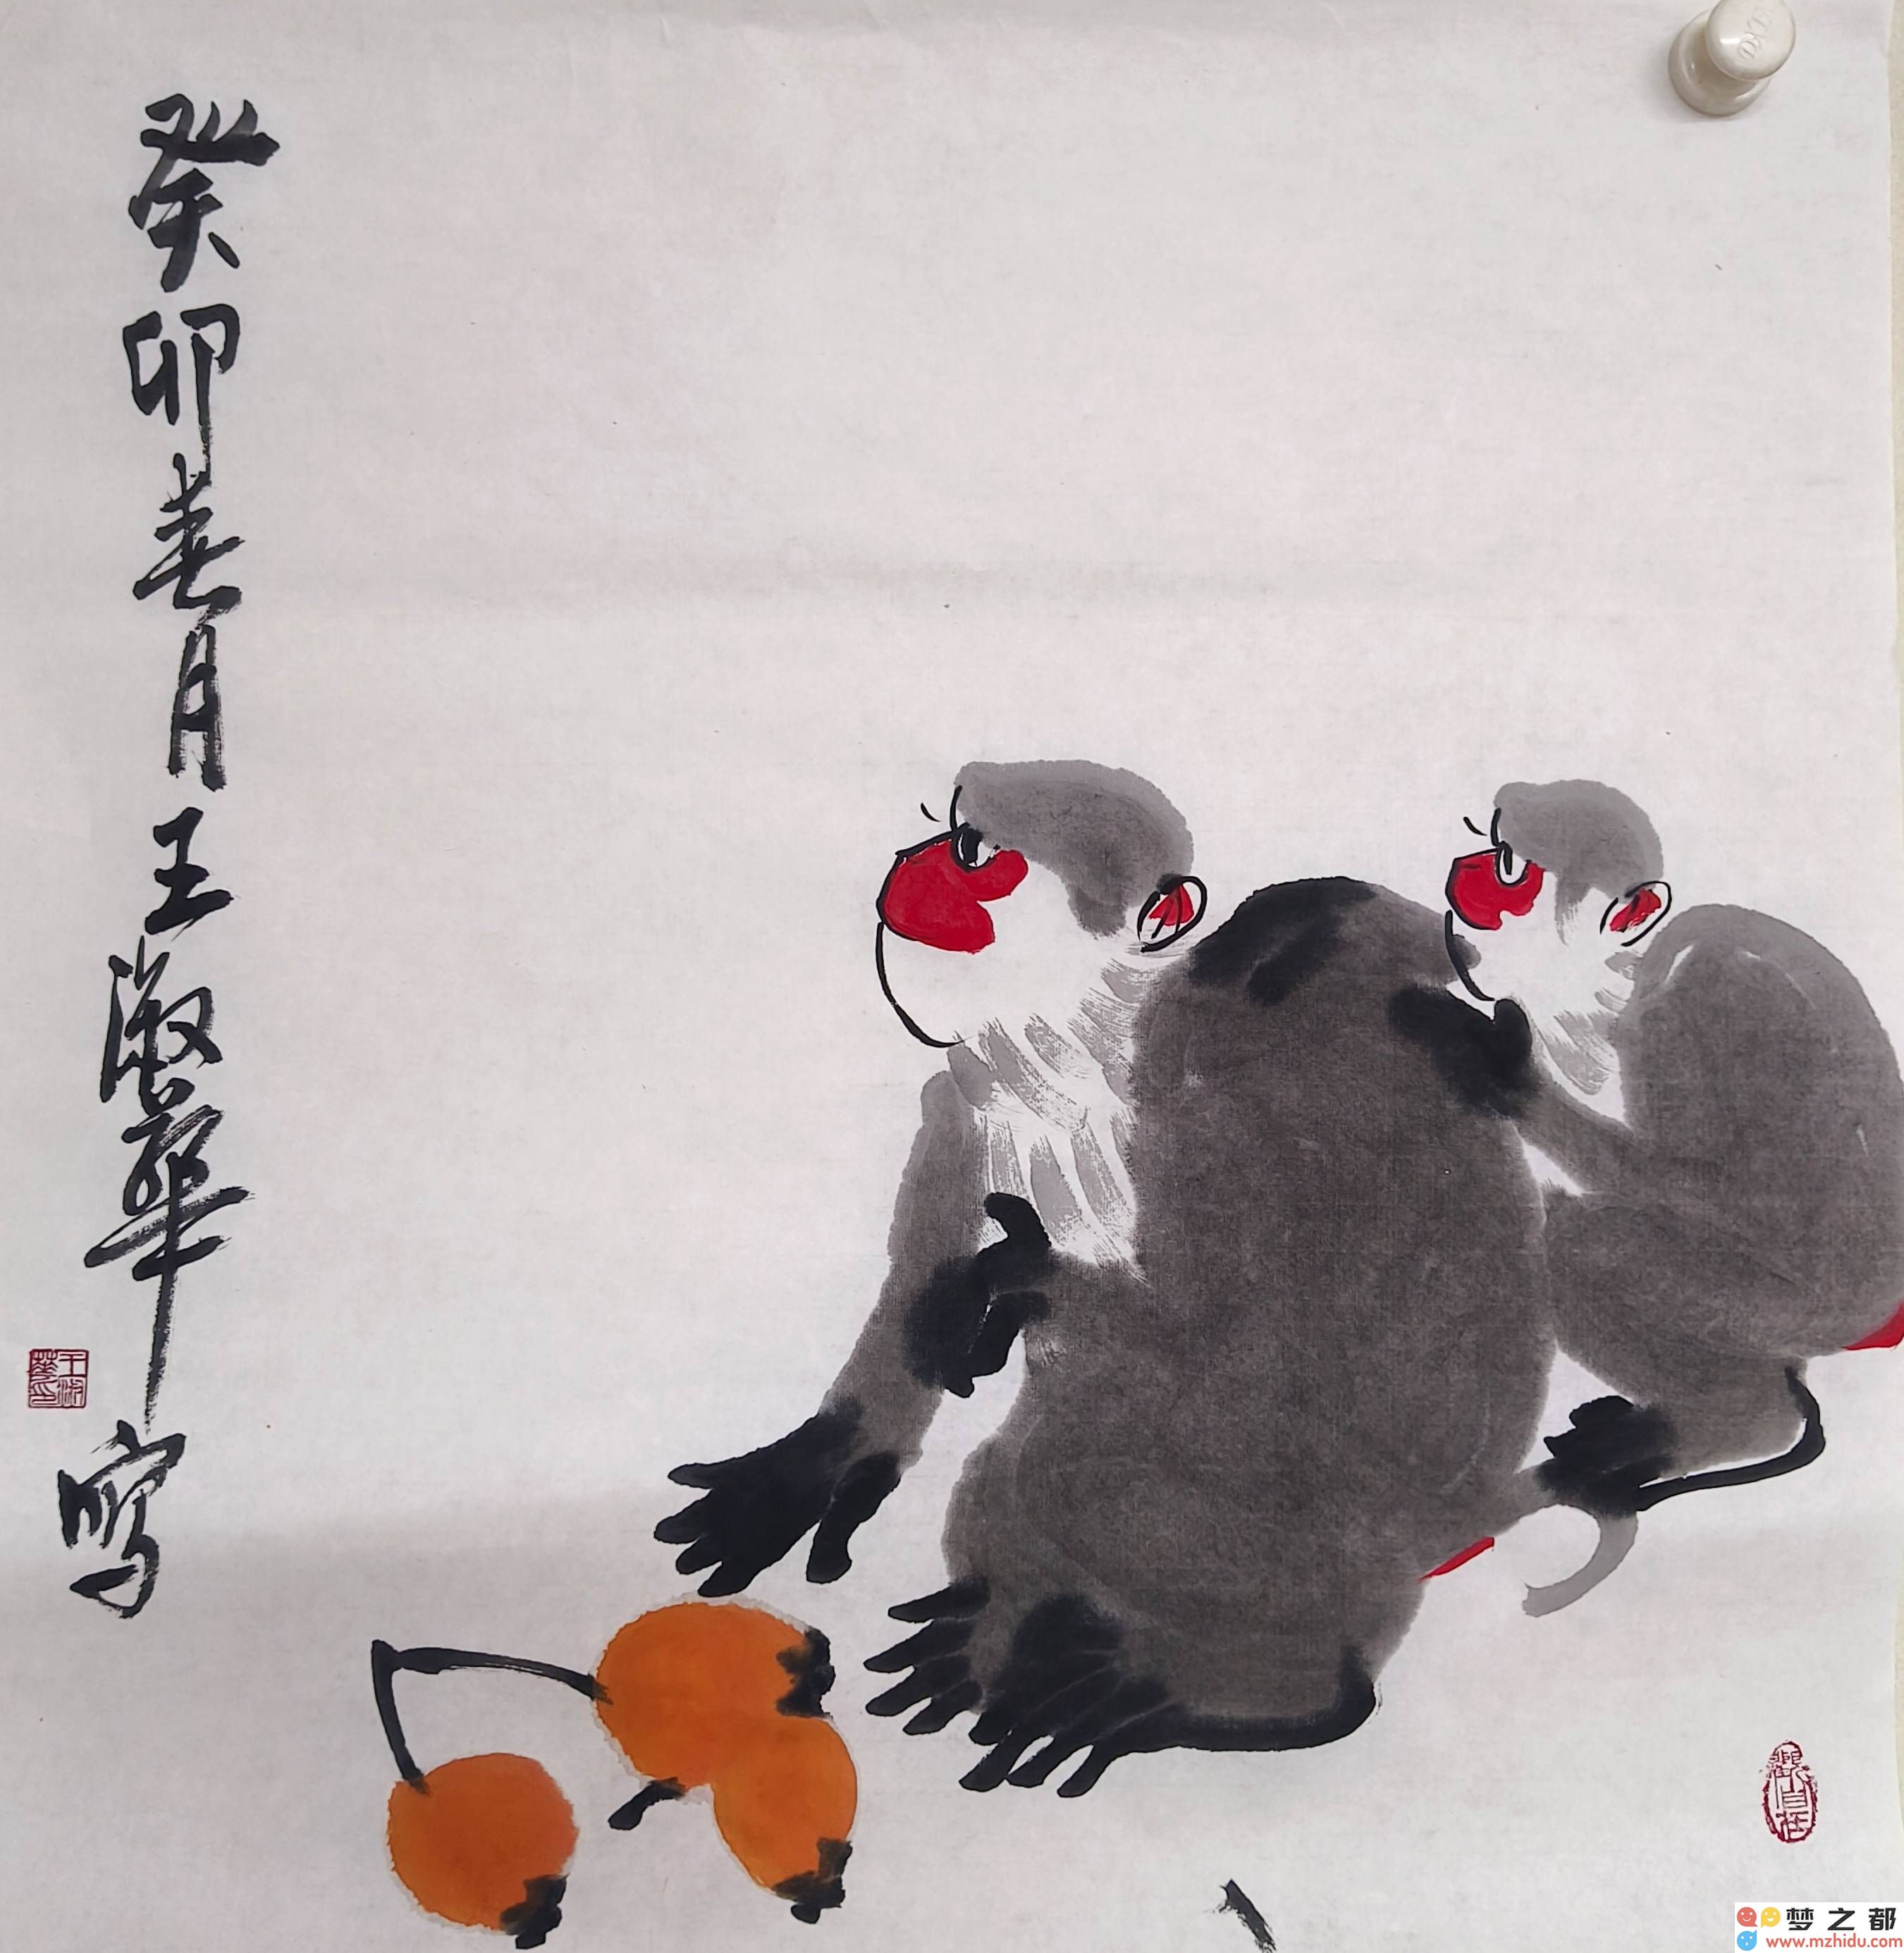 癸卯春月王淑华写
王淑华印
梦之都
www.mzhidu.com